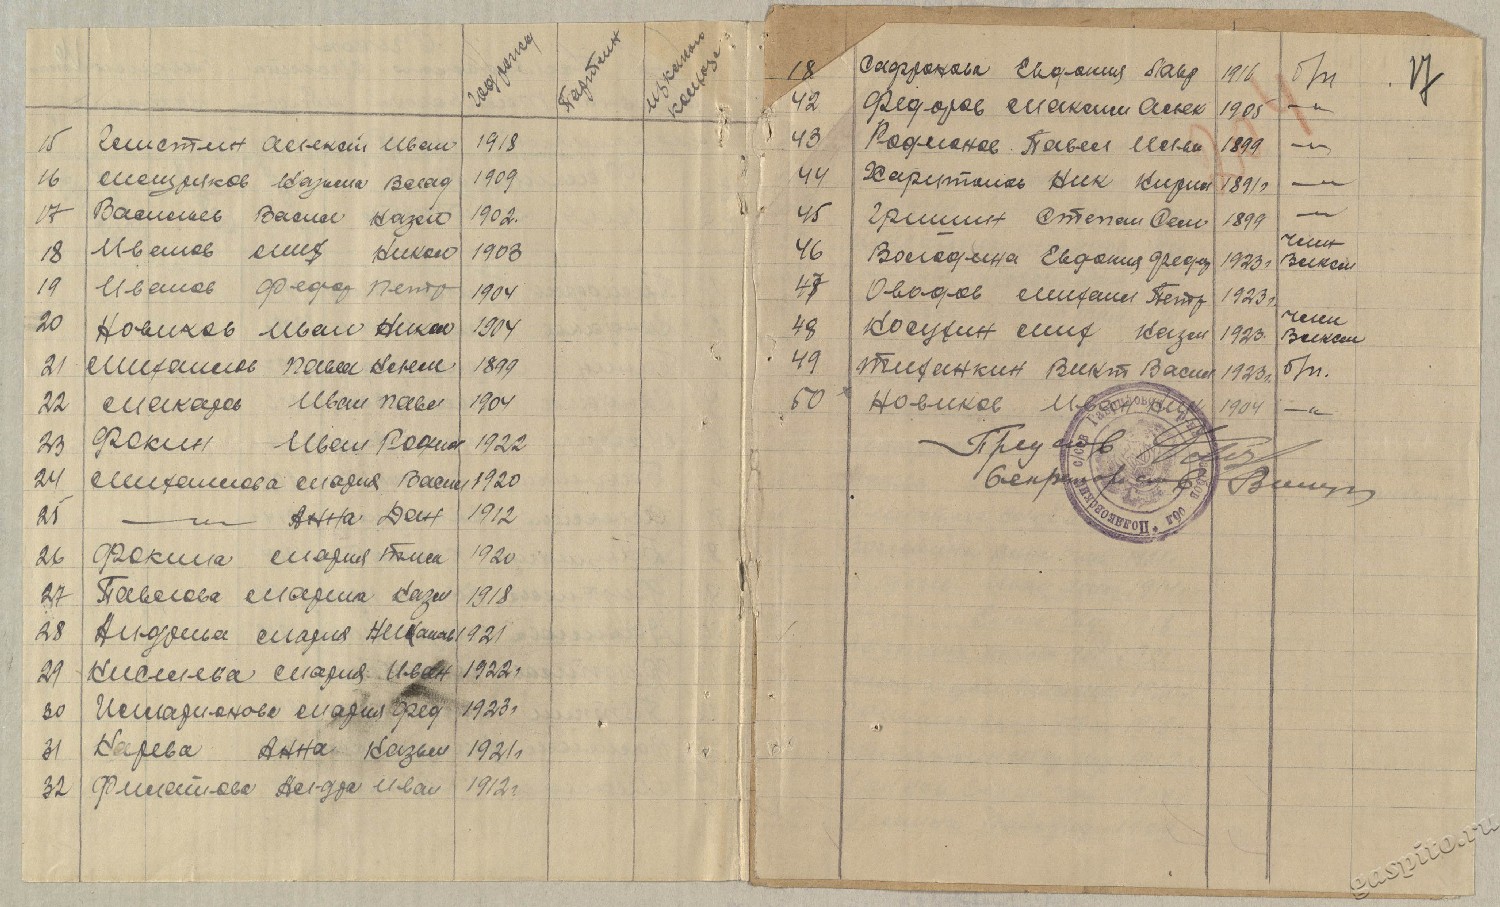 Год рожд
Партийн
Из какого колхоза
15 Алексей Иван 1918
16 Мещряков Казьма Влад 1909
17 Васильев Васил Казм 1902.
18 Иванов Мих Никол 1903
19 Иванов Федор Петр 1904
20 Новиков Иван Никол 1904
21 Михаилов Павел 1899
22 Макаров Иван Павл 1904
23 Фокин Иван Родион 1922
24 Михаилова Мария Васил 1920
25 —〃— Анна Дан 1912
26 Фокина Мария Тим 1920
27 Павлова Марина Казм 1918
28 Мария 1921
29 Киселева Мария Иван 1922г
30 Илларионова Мария Фед 1923г
31 Карева Анна Казьм 1921г
32 Филатова Иван 1912г
18 Сафронова Евдокия Давд 1916 б/п 17
42 Федоров Максим Алек 1905 —〃—
43 Родионов Павел Илла 1899 —〃—
44 Харитонов Ник Кирил 1891г —〃—
45 Гришин Степан Сем 1899 —〃—
46 Володина Евдокия Федор 1923г член Влксм
47 Оводов Михаил Петр 1923г
48 Косухин Мих Казм 1923 член Влксм
49 Тиханкин Викт Васил 1923г б/п.
50 Новиков Иван Ник 1904 —〃—
Пред с/с
Секретарь с/с
gaspito.ru